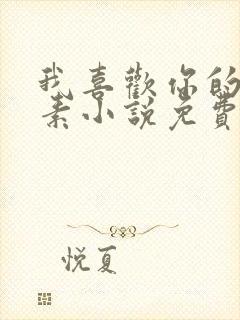 我喜歡你的
素小說免費
悦夏